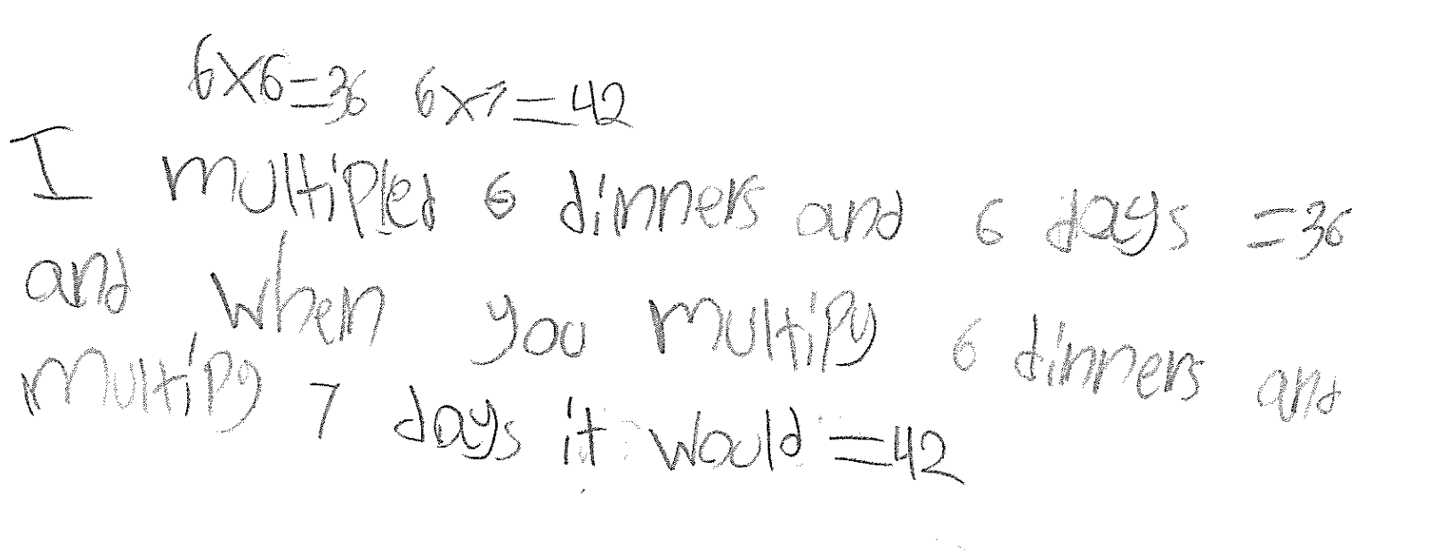 6x6=36 6x7=42
I multipled 6 dinners and 6 days =36
and when you multipy 6 dinners and
multipy 7 days it would =42